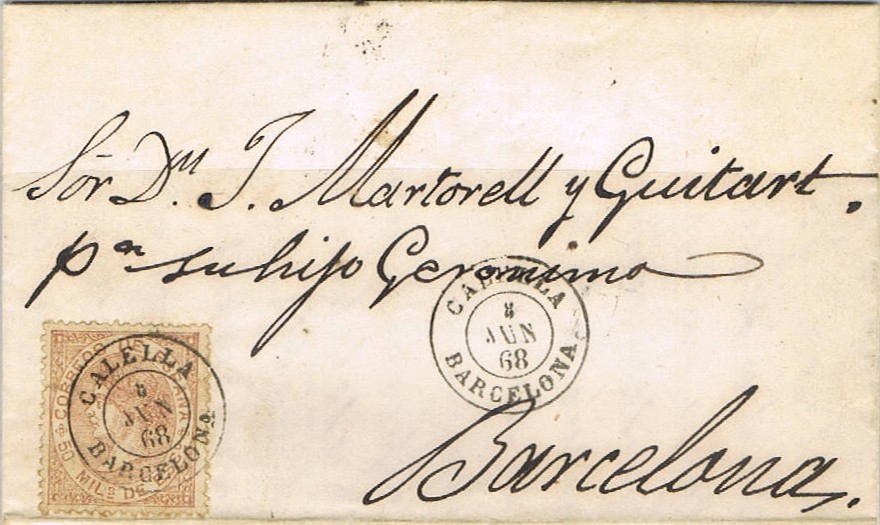 Sōr Dn. J. Martorell y Guitart.
pa su hijo Geronimo
CALELLA
8
JUN
68
BARCELONA
CORREOS
50 MILS DE
CALELLA
8
JUN
68
BARCELONA
Barcelona.